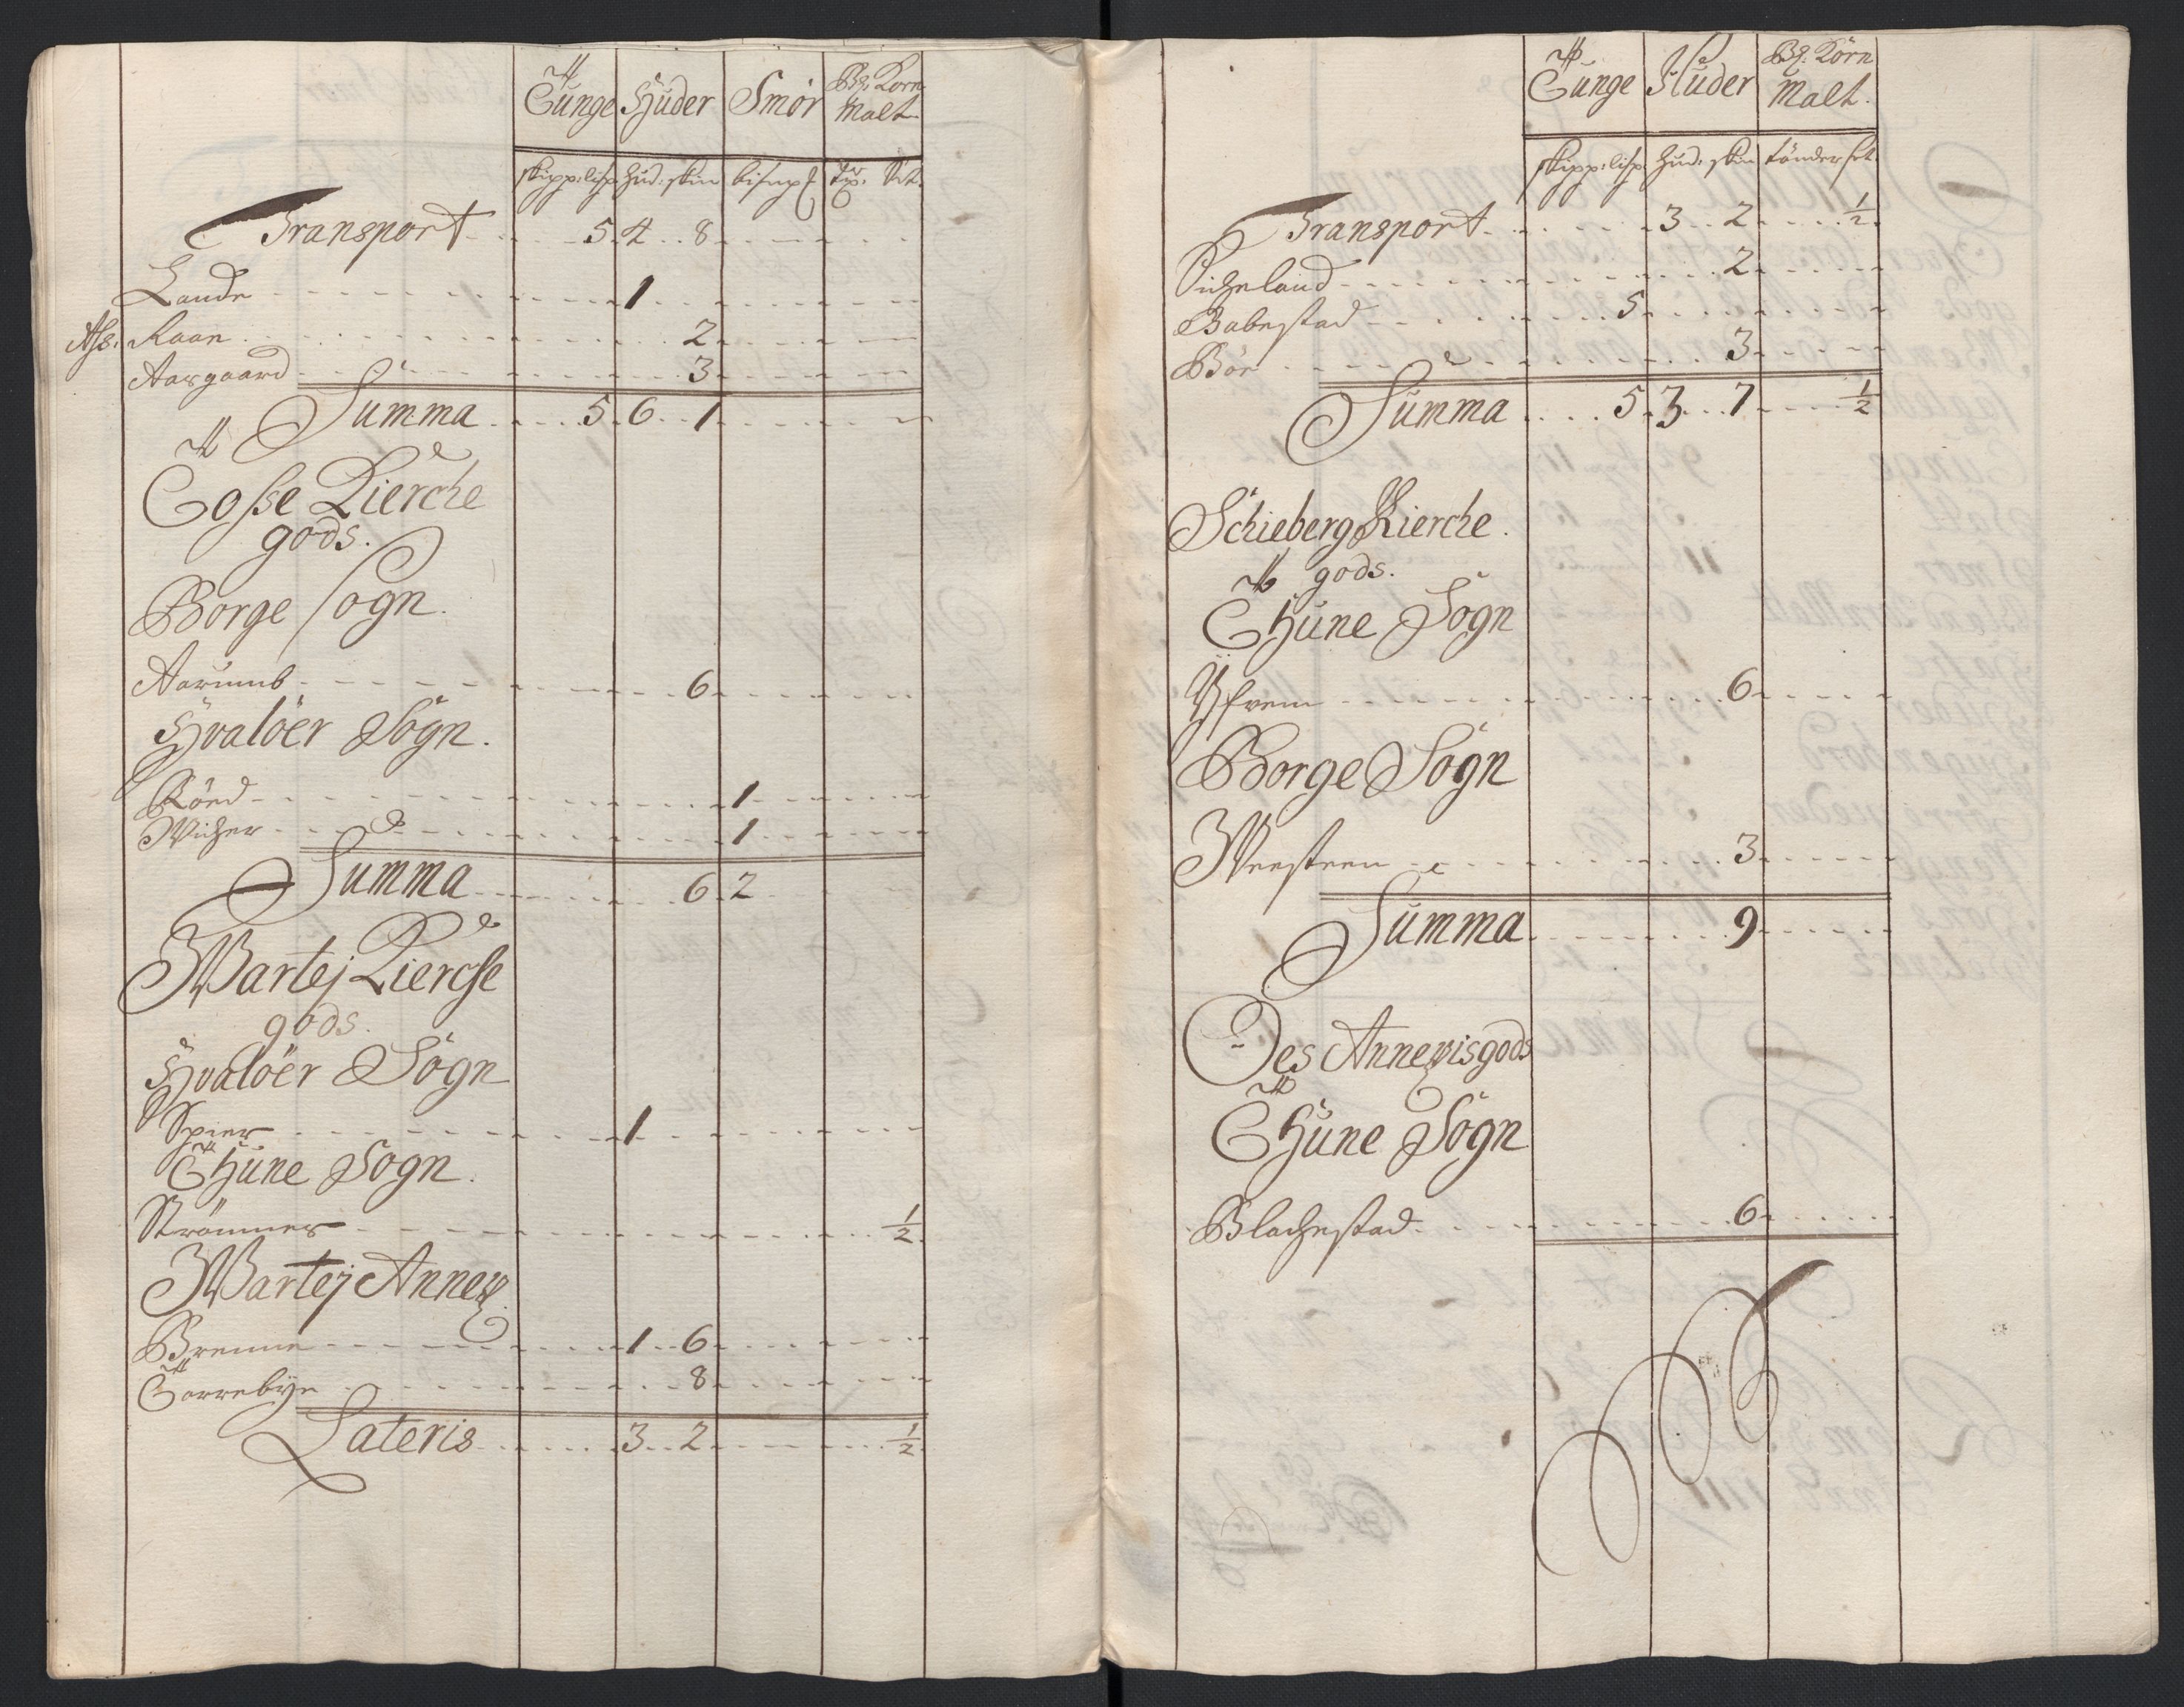 Tunge Huder Smör Bl: Korn Malt
skipp: lisp. hud: skin bismp tdr. Set.
Transport 5. 4 8
Lande 1
Raan 2
Aasgaard 3
Summa 5. 6 1
Tosse Kierche
gods.
Borge Sogn.
Aarumb 6
Hvalöer Sogn.
Röed 1
Wicher 1
Summa 6 2
Wartej Kierche
gods.
Hvalöer Sogn
Spier 1
Thune Sogn.
Strömner 1/2
Wartej Annex
Brenne 1 6
Torrebye 8
Lateris 3 2 1/2
Tunge Huder Bl: Korn Malt.
skipp: lisp hud: skin tönder set.
Transport 3 2 1/2
2
Babestad 5
Bör 3
Summa 5. 3 7 1/2
Schieberg Kierche.
gods.
Thune Sogn
6
Borge Sogn
Weesteen 3
Summa 9
Des Annexis gods
Thune Sogn
Blachestad 6